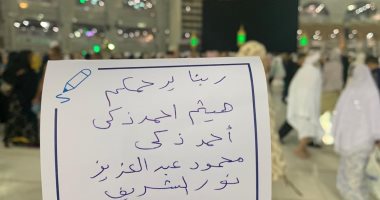 ربنا يرحمكم
هيثم احمد زكى
أحمد زكى
محمود عبد العزيز
نور الشريف